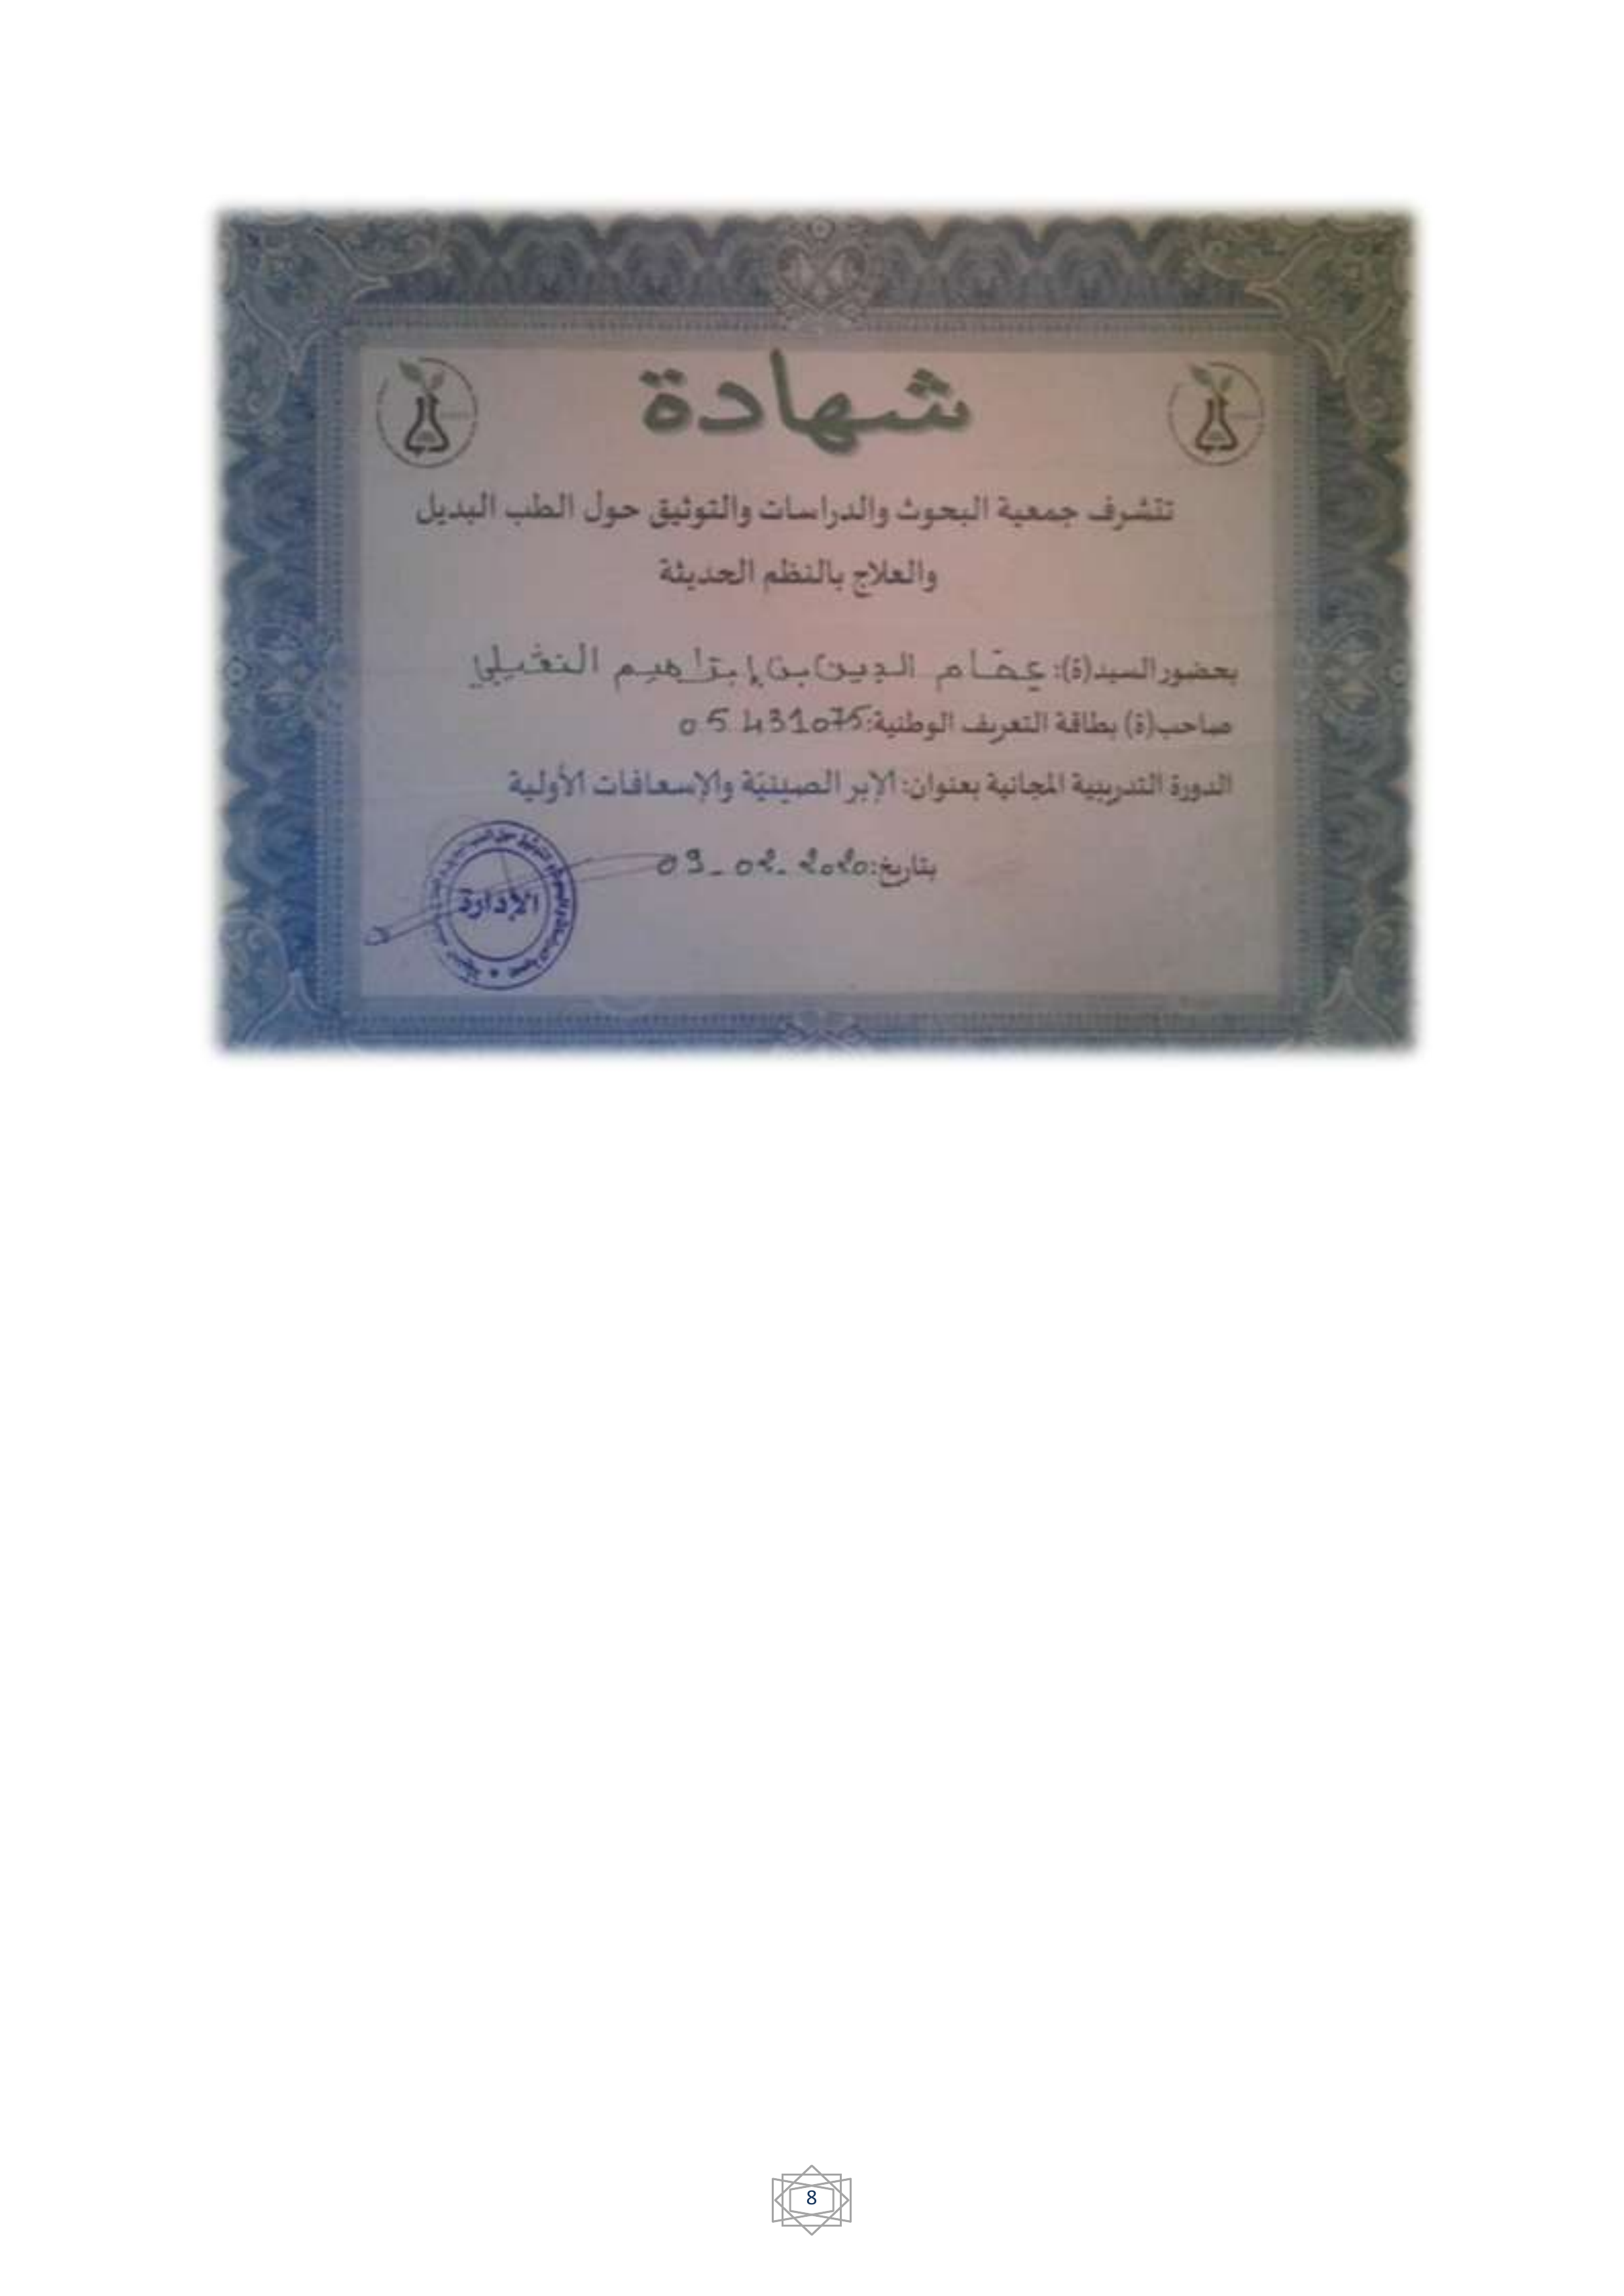 شهادة
تتشرف جمعية البحوث والدراسات والتوثيق حول الطب البديل
والعلاج بالنظم الحديثة
بحضور السيد(ة): عصام الدين بن إبراهيم النغيلي
صاحب(ة) بطاقة التعريف الوطنية: 05431075
الدورة التدريبية المجانية بعنوان: الإبر الصينيّة والإسعافات الأولية
بتاريخ: 09-02-2020
الإدارة
8